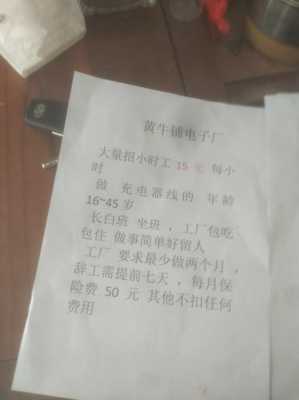 黄牛铺电子厂
大量招小时工 15 元 每小
时
做 充电器线的 年龄
16~45 岁
长白班 坐班 ，工厂包吃
包住 做事简单好做人
工厂 要求最少做两个月 ，
辞工需提前七天 ，每月保
险费 50 元 其他不扣任何
费用